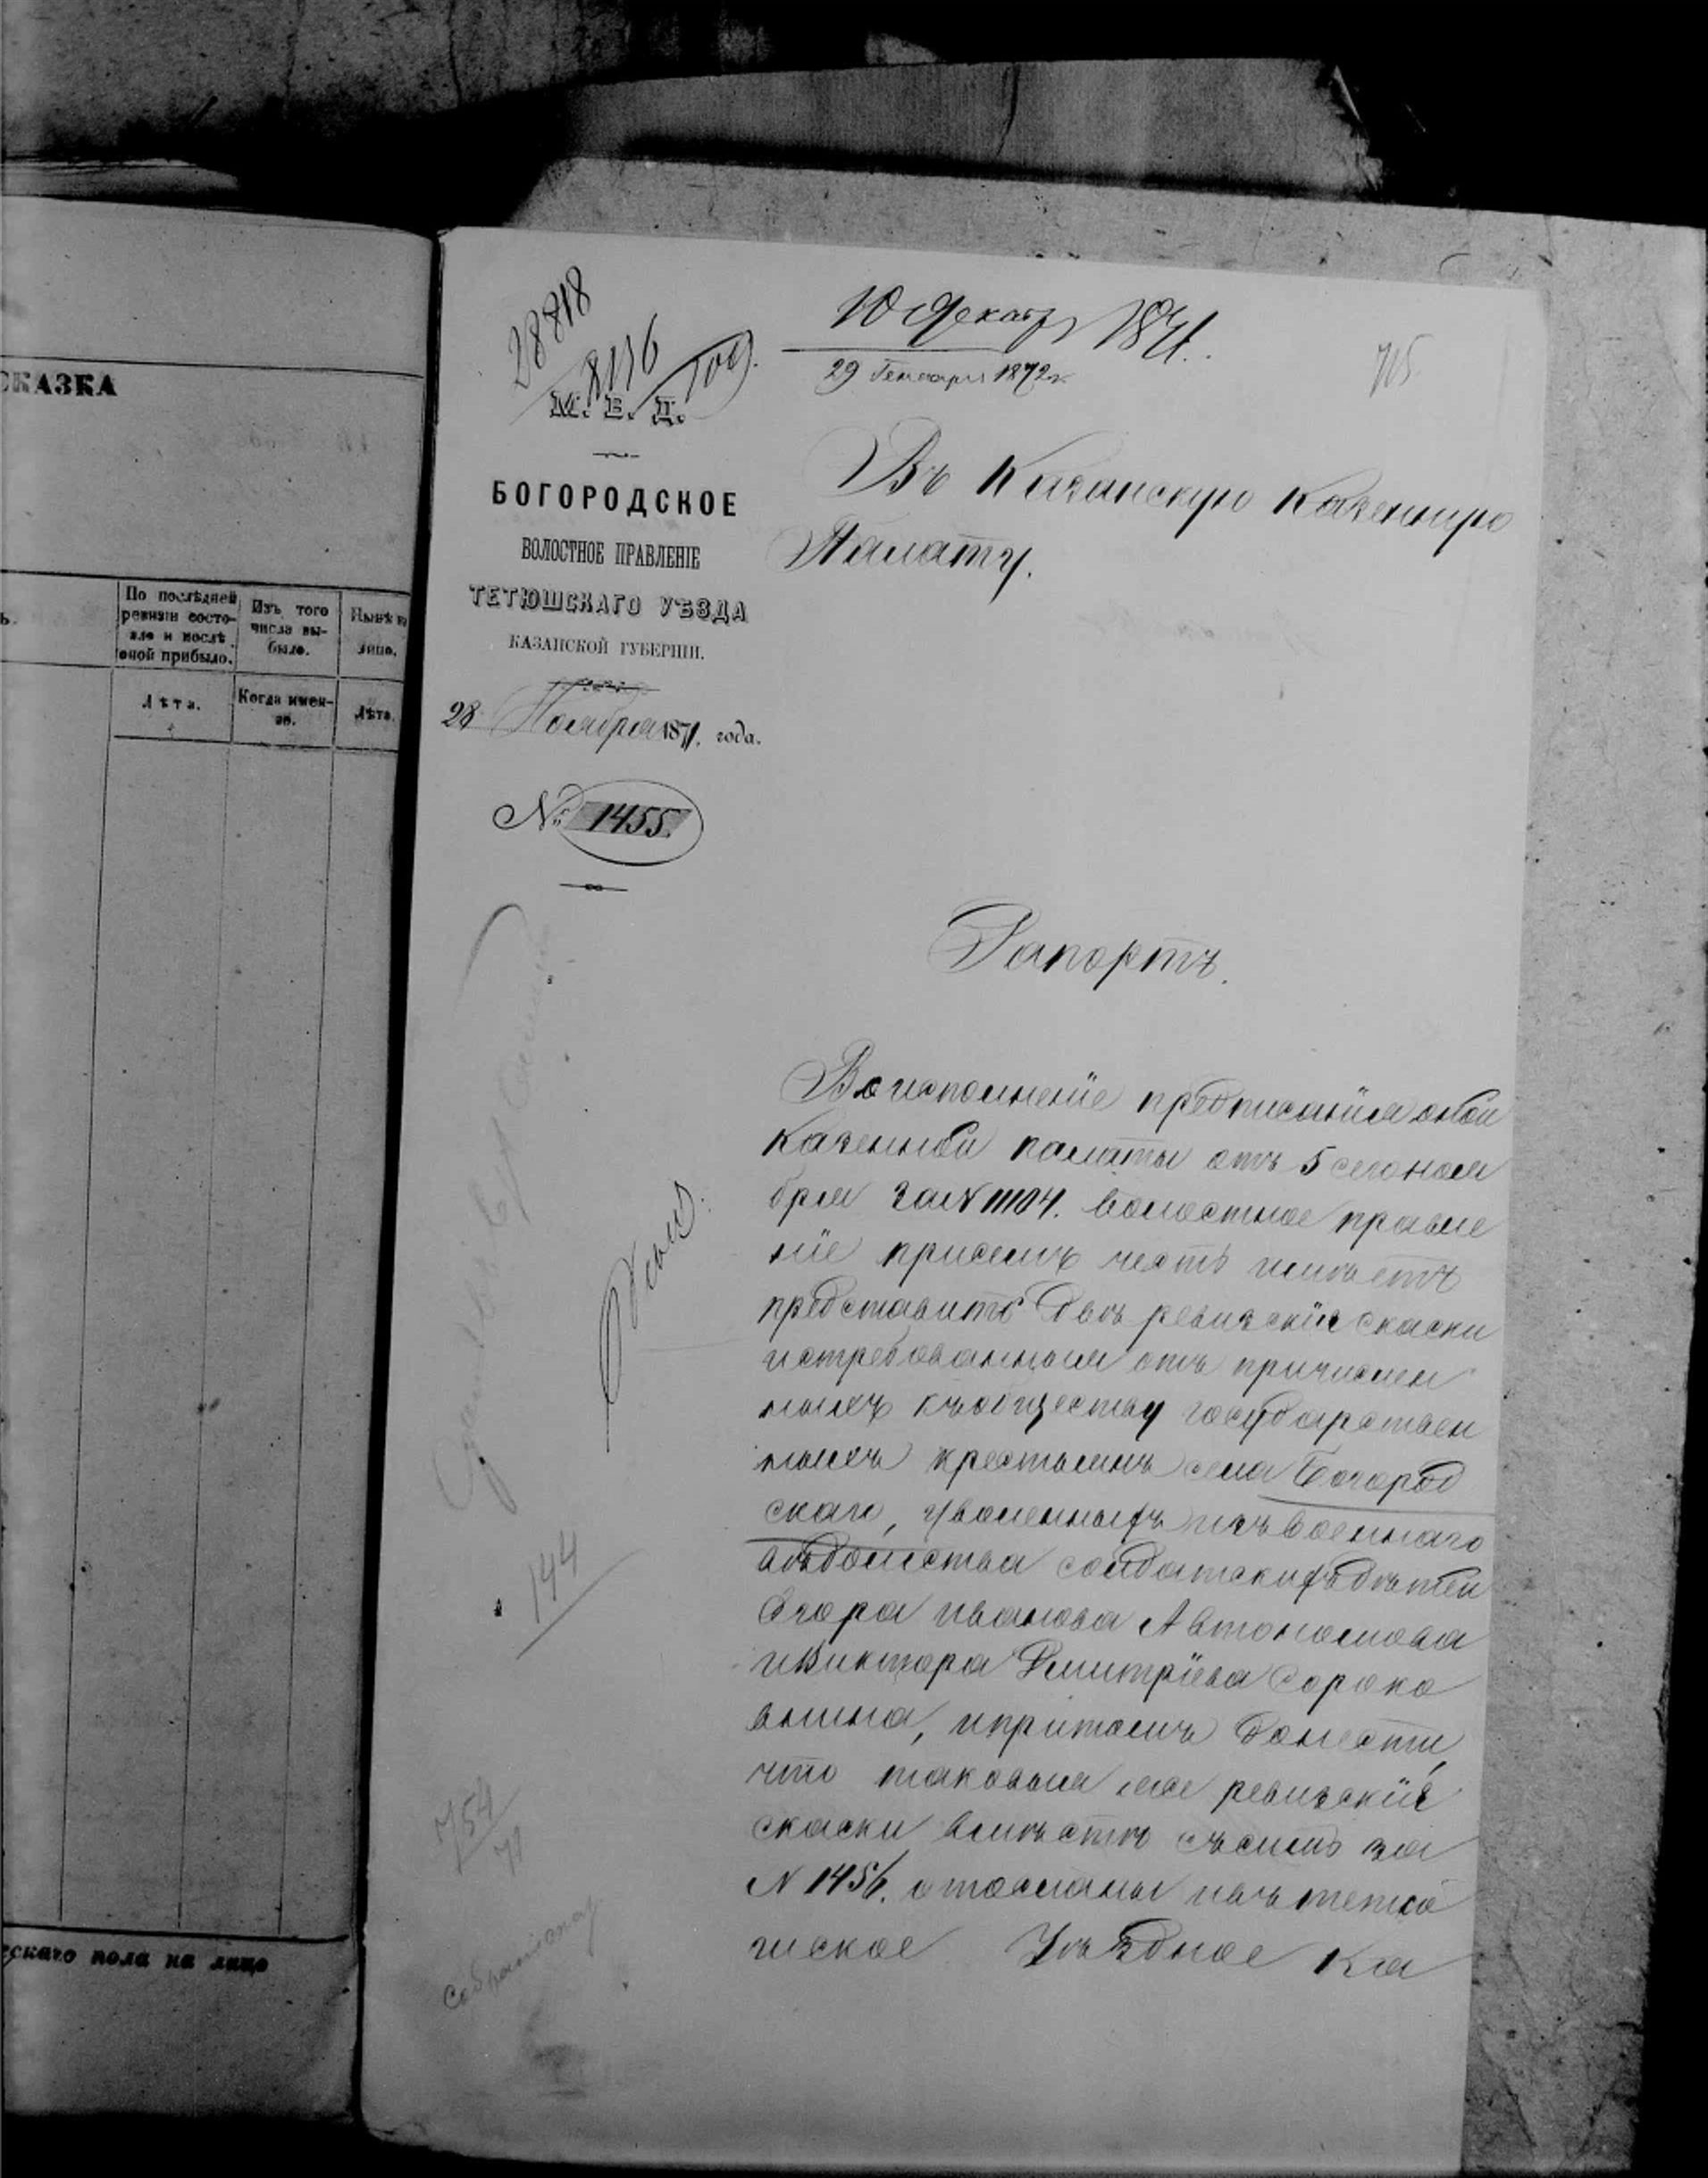 СКАЗКА
По послѣдней
ревизіи состо-
яло и послѣ
оной прибыло.
Изъ того
числа вы-
было.
Нынѣ на
лицо.
Лѣта.
Когда имен-
но.
Лѣта.
ескаго пола на лицо
28818
8116
М. В. Д.
БОГОРОДСКОЕ
ВОЛОСТНОЕ ПРАВЛЕНІЕ
ТЕТЮШСКАГО УѢЗДА
КАЗАНСКОЙ ГУБЕРНІИ.
28 Ноября 1871. года.
№ 1455.
144
754
71
10 Декабр 1871.
29 Генваря 1872 г.
715
Въ Казанскую Казенную
Палату.
Рапортъ.
Во исполненіе предписанія оной
Казенной палаты отъ 5 сего ноя
бря за N 11104. волостное правле
ніе присемъ честь имѣетъ
представить двѣ ревизскія скаски
истребованныя отъ причислен
ныхъ къ обществу государствен
ныхъ крестьянъ села Богород
скаго, уволенныхъ изъ военнаго
вѣдомства солдатскихъ дѣтей
Егора Иванова Автономова
и Виктора Дмитріева Сороко
внина, и притомъ донести,
что таковыя же ревизскія
скаски вмѣстѣ съ симъ за
N 1456. отосланы въ тетю
шское Уѣздное Ка